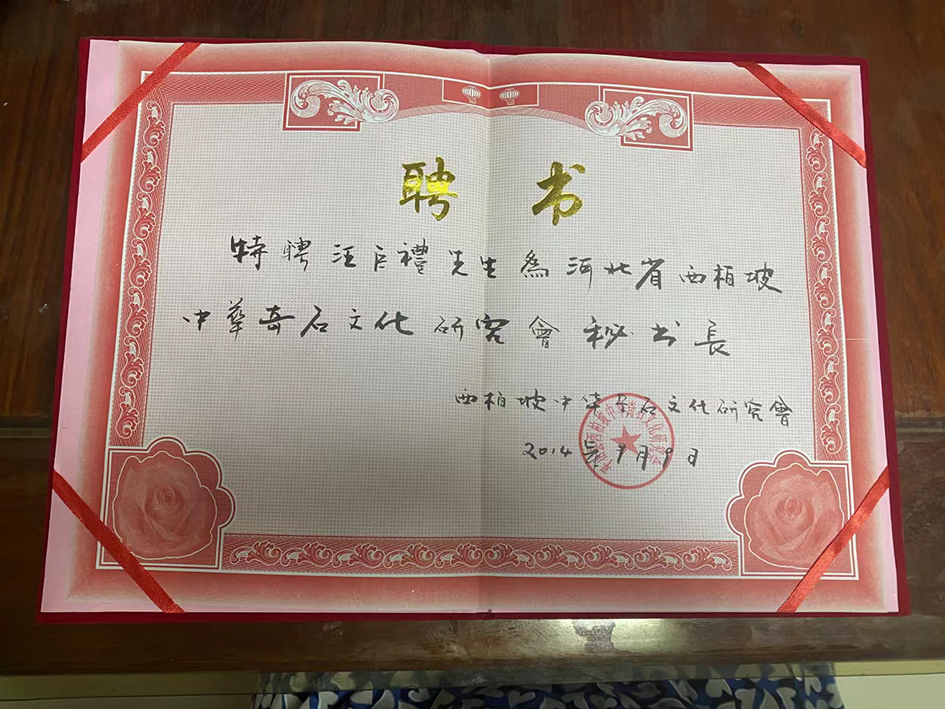 聘 书
特聘汪启禮先生為河北省西柏坡
中華奇石文化研究會秘书長
西柏坡中华奇石文化研究會
2014年9月9日